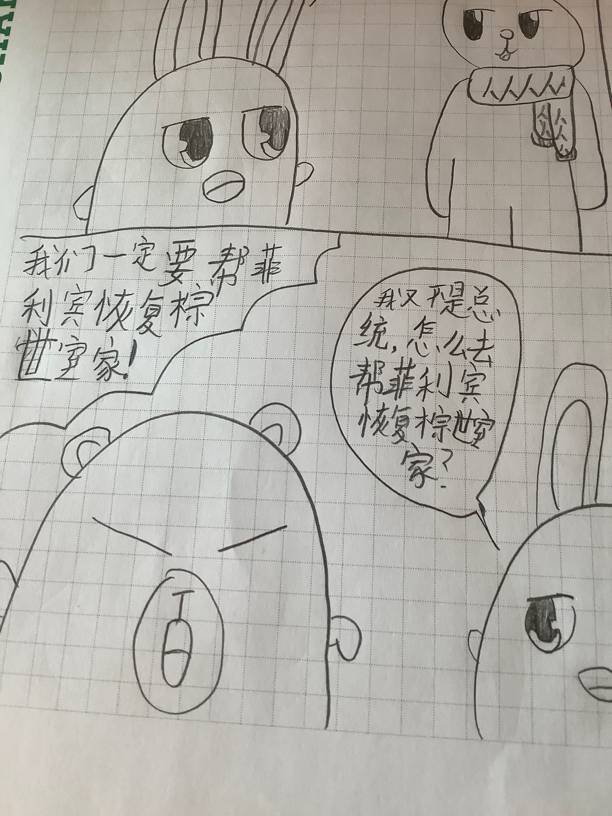 我们一定要帮菲
利宾恢复棕
世宜家!
我又不是总
统,怎么去
帮菲利宾
恢复棕世宜
家?